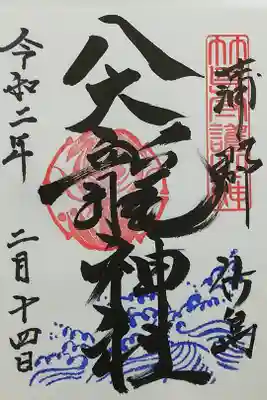 蒲郡
竹島
八大龍神社
令和二年
二月十四日